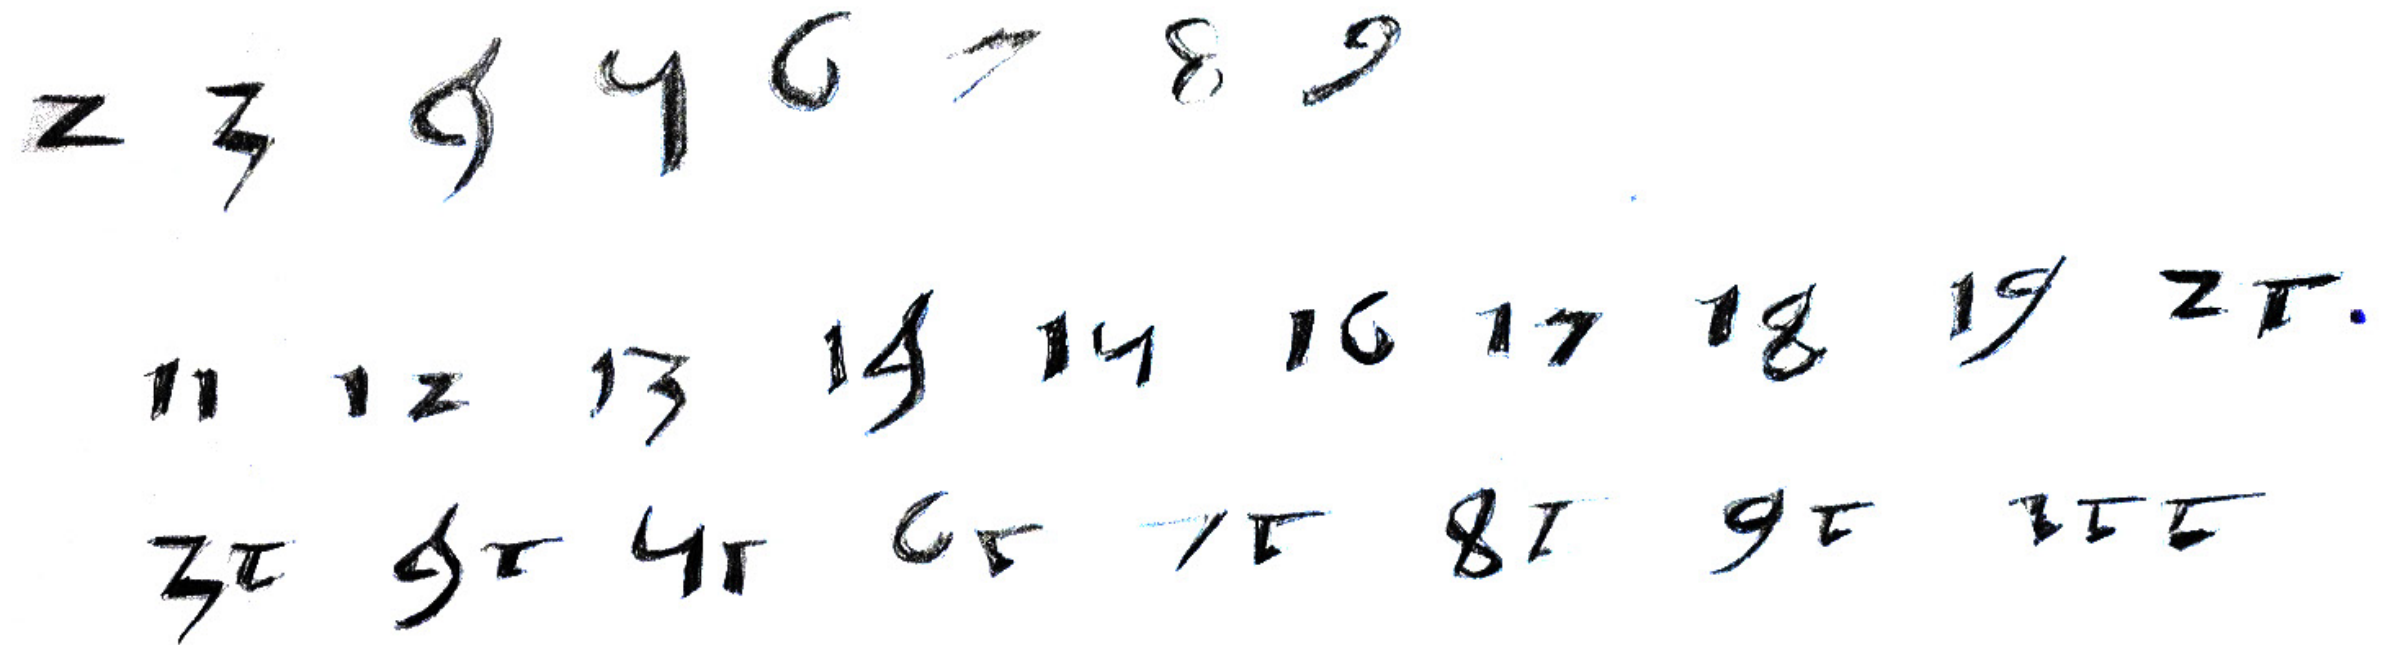 2 3 4 5 6 7 8 9
11 12 13 14 15 16 17 18 19 20.
30 40 50 60 70 80 90 100